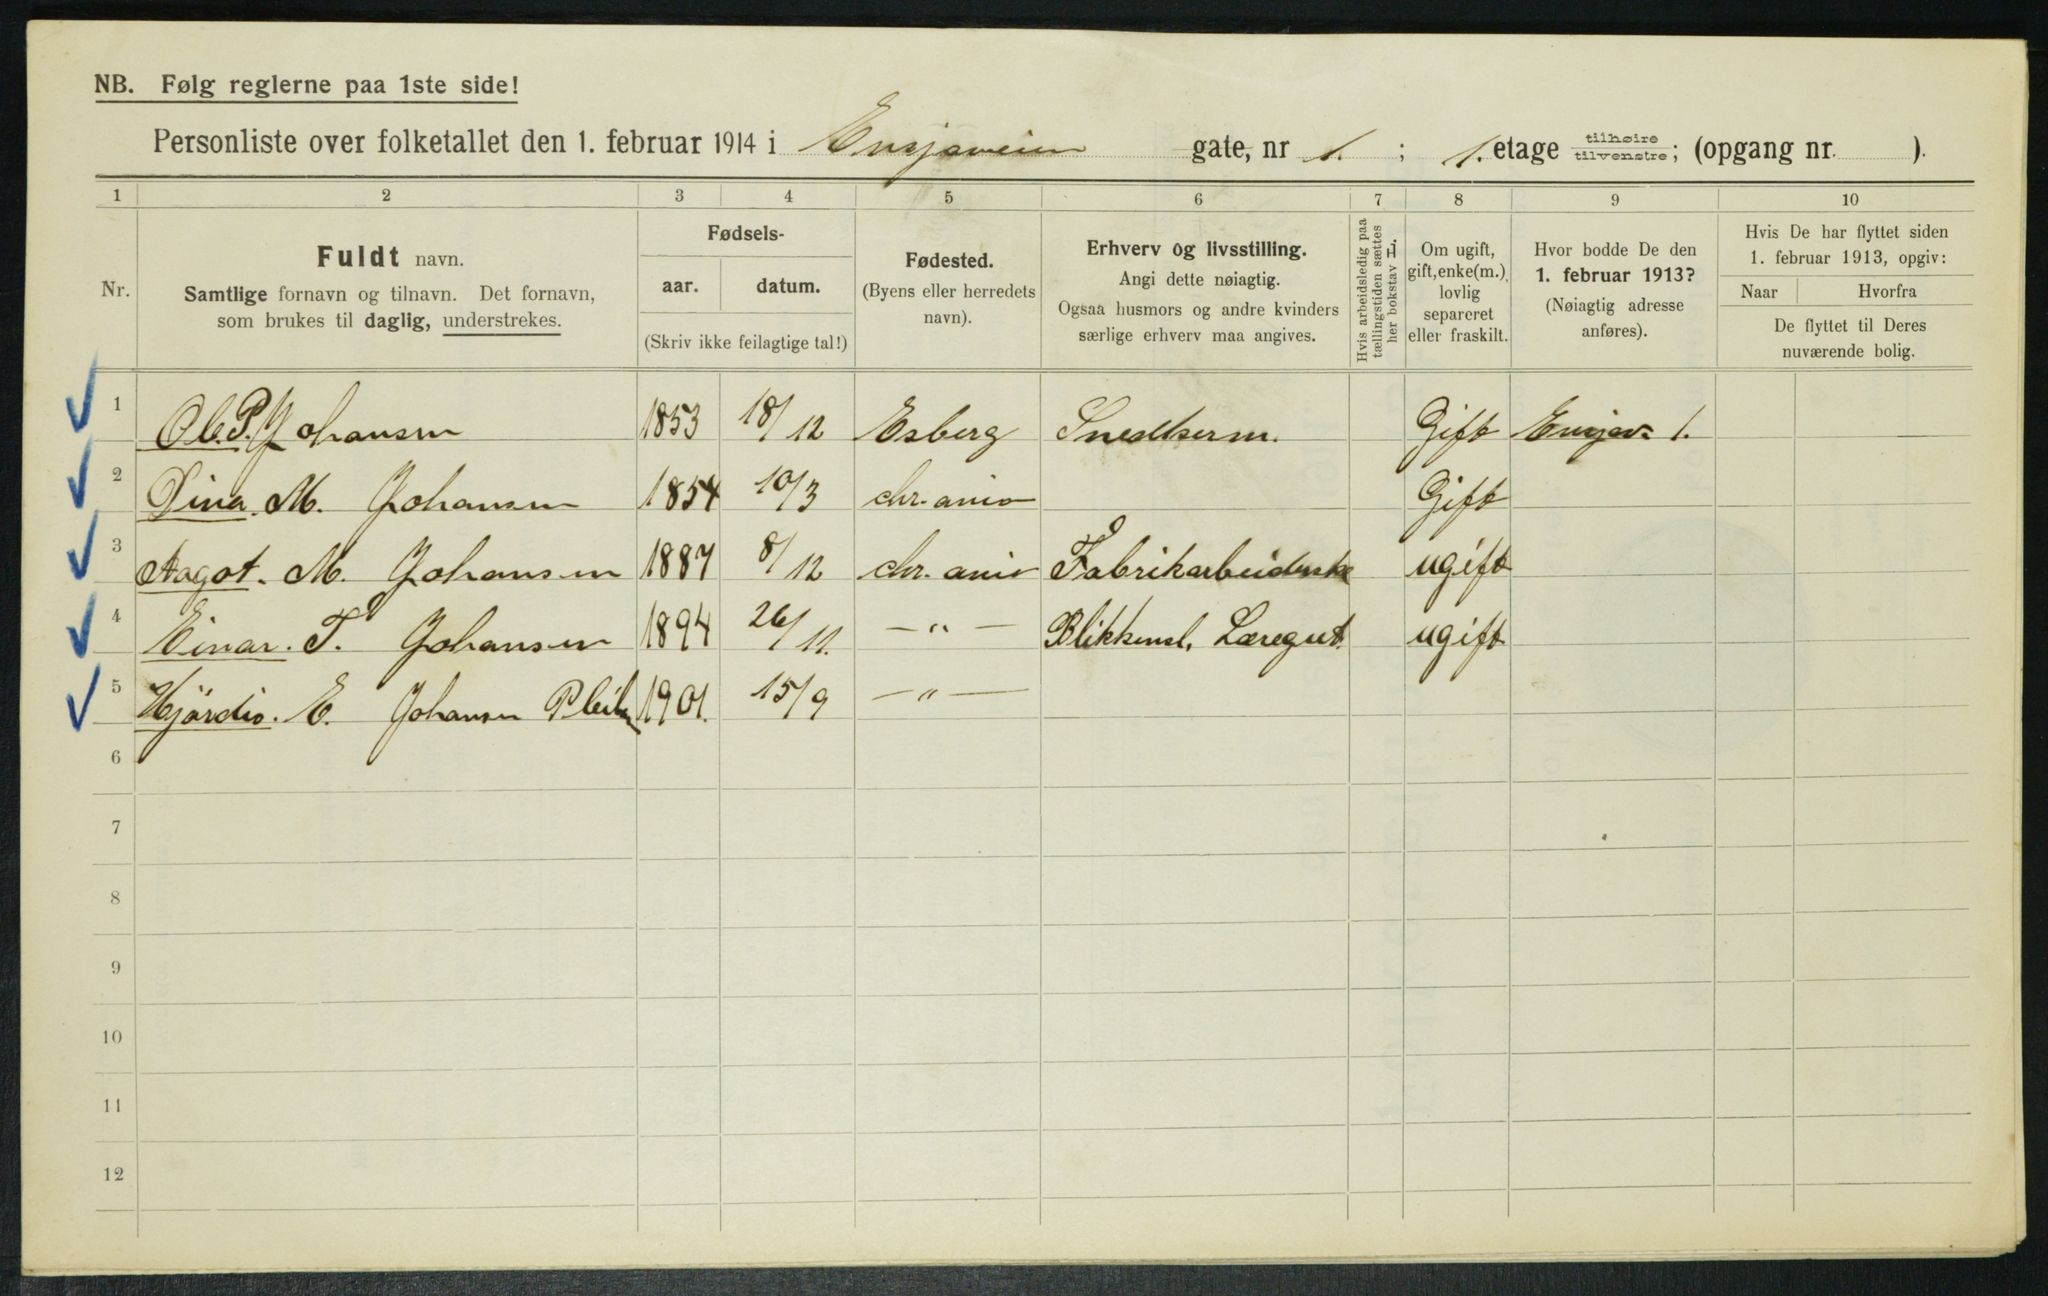 NB. Følg reglerne paa 1ste side!
Personliste over folketallet den 1. februar 1914 i Ensjøveien gate, nr 1. ; 1. etage tilhøire tilvenstre; (opgang nr. ).
1 2 3 4 5 6 7 8 9 10
Nr.
Fuldt navn.
Samtlige fornavn og tilnavn. Det fornavn,
som brukes til daglig, understrekes.
Fødsels-
aar. datum.
(Skriv ikke feilagtige tal!)
Fødested.
(Byens eller herredets
navn).
Erhverv og livsstilling.
Angi dette nøiagtig.
Ogsaa husmors og andre kvinders
særlige erhverv maa angives.
Hvis arbeidsledig paa
tællingstiden sættes
her bokstav L.
Om ugift,
gift, enke(m.),
lovlig
separeret
eller fraskilt.
Hvor bodde De den
1. februar 1913?
(Nøiagtig adresse
anføres).
Hvis De har flyttet siden
1. februar 1913, opgiv:
Naar Hvorfra
De flyttet til Deres
nuværende bolig.
1 Ole P. Johansen 1853 18/12 Esberg Snedkerm. Gift Ensjøv. 1.
2 Dina. M. Johansen 1854 10/3 chr. ania Gift
3 Aagot. M. Johansen 1887 8/12 chr. ania Fabrikarbeiderske ugift
4 Einar. T. Johansen 1894 26/11. —„— Blikkensl. Læregut. ugift
5 Hjørdis. E. Johansen 1901. 15/9 —„—
6
7
8
9
10
11
12